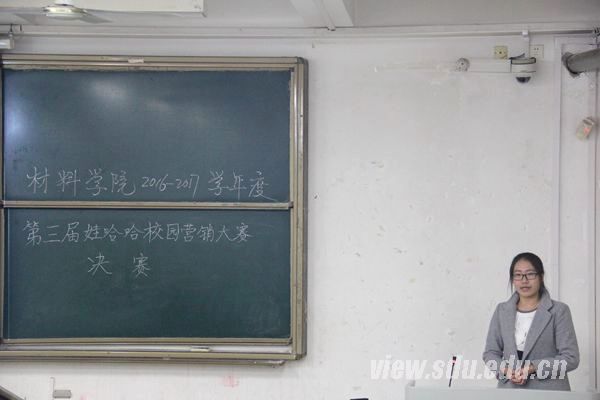 材料学院2016-2017学年度
第三届娃哈哈校园营销大赛
决赛
view.sdu.edu.cn